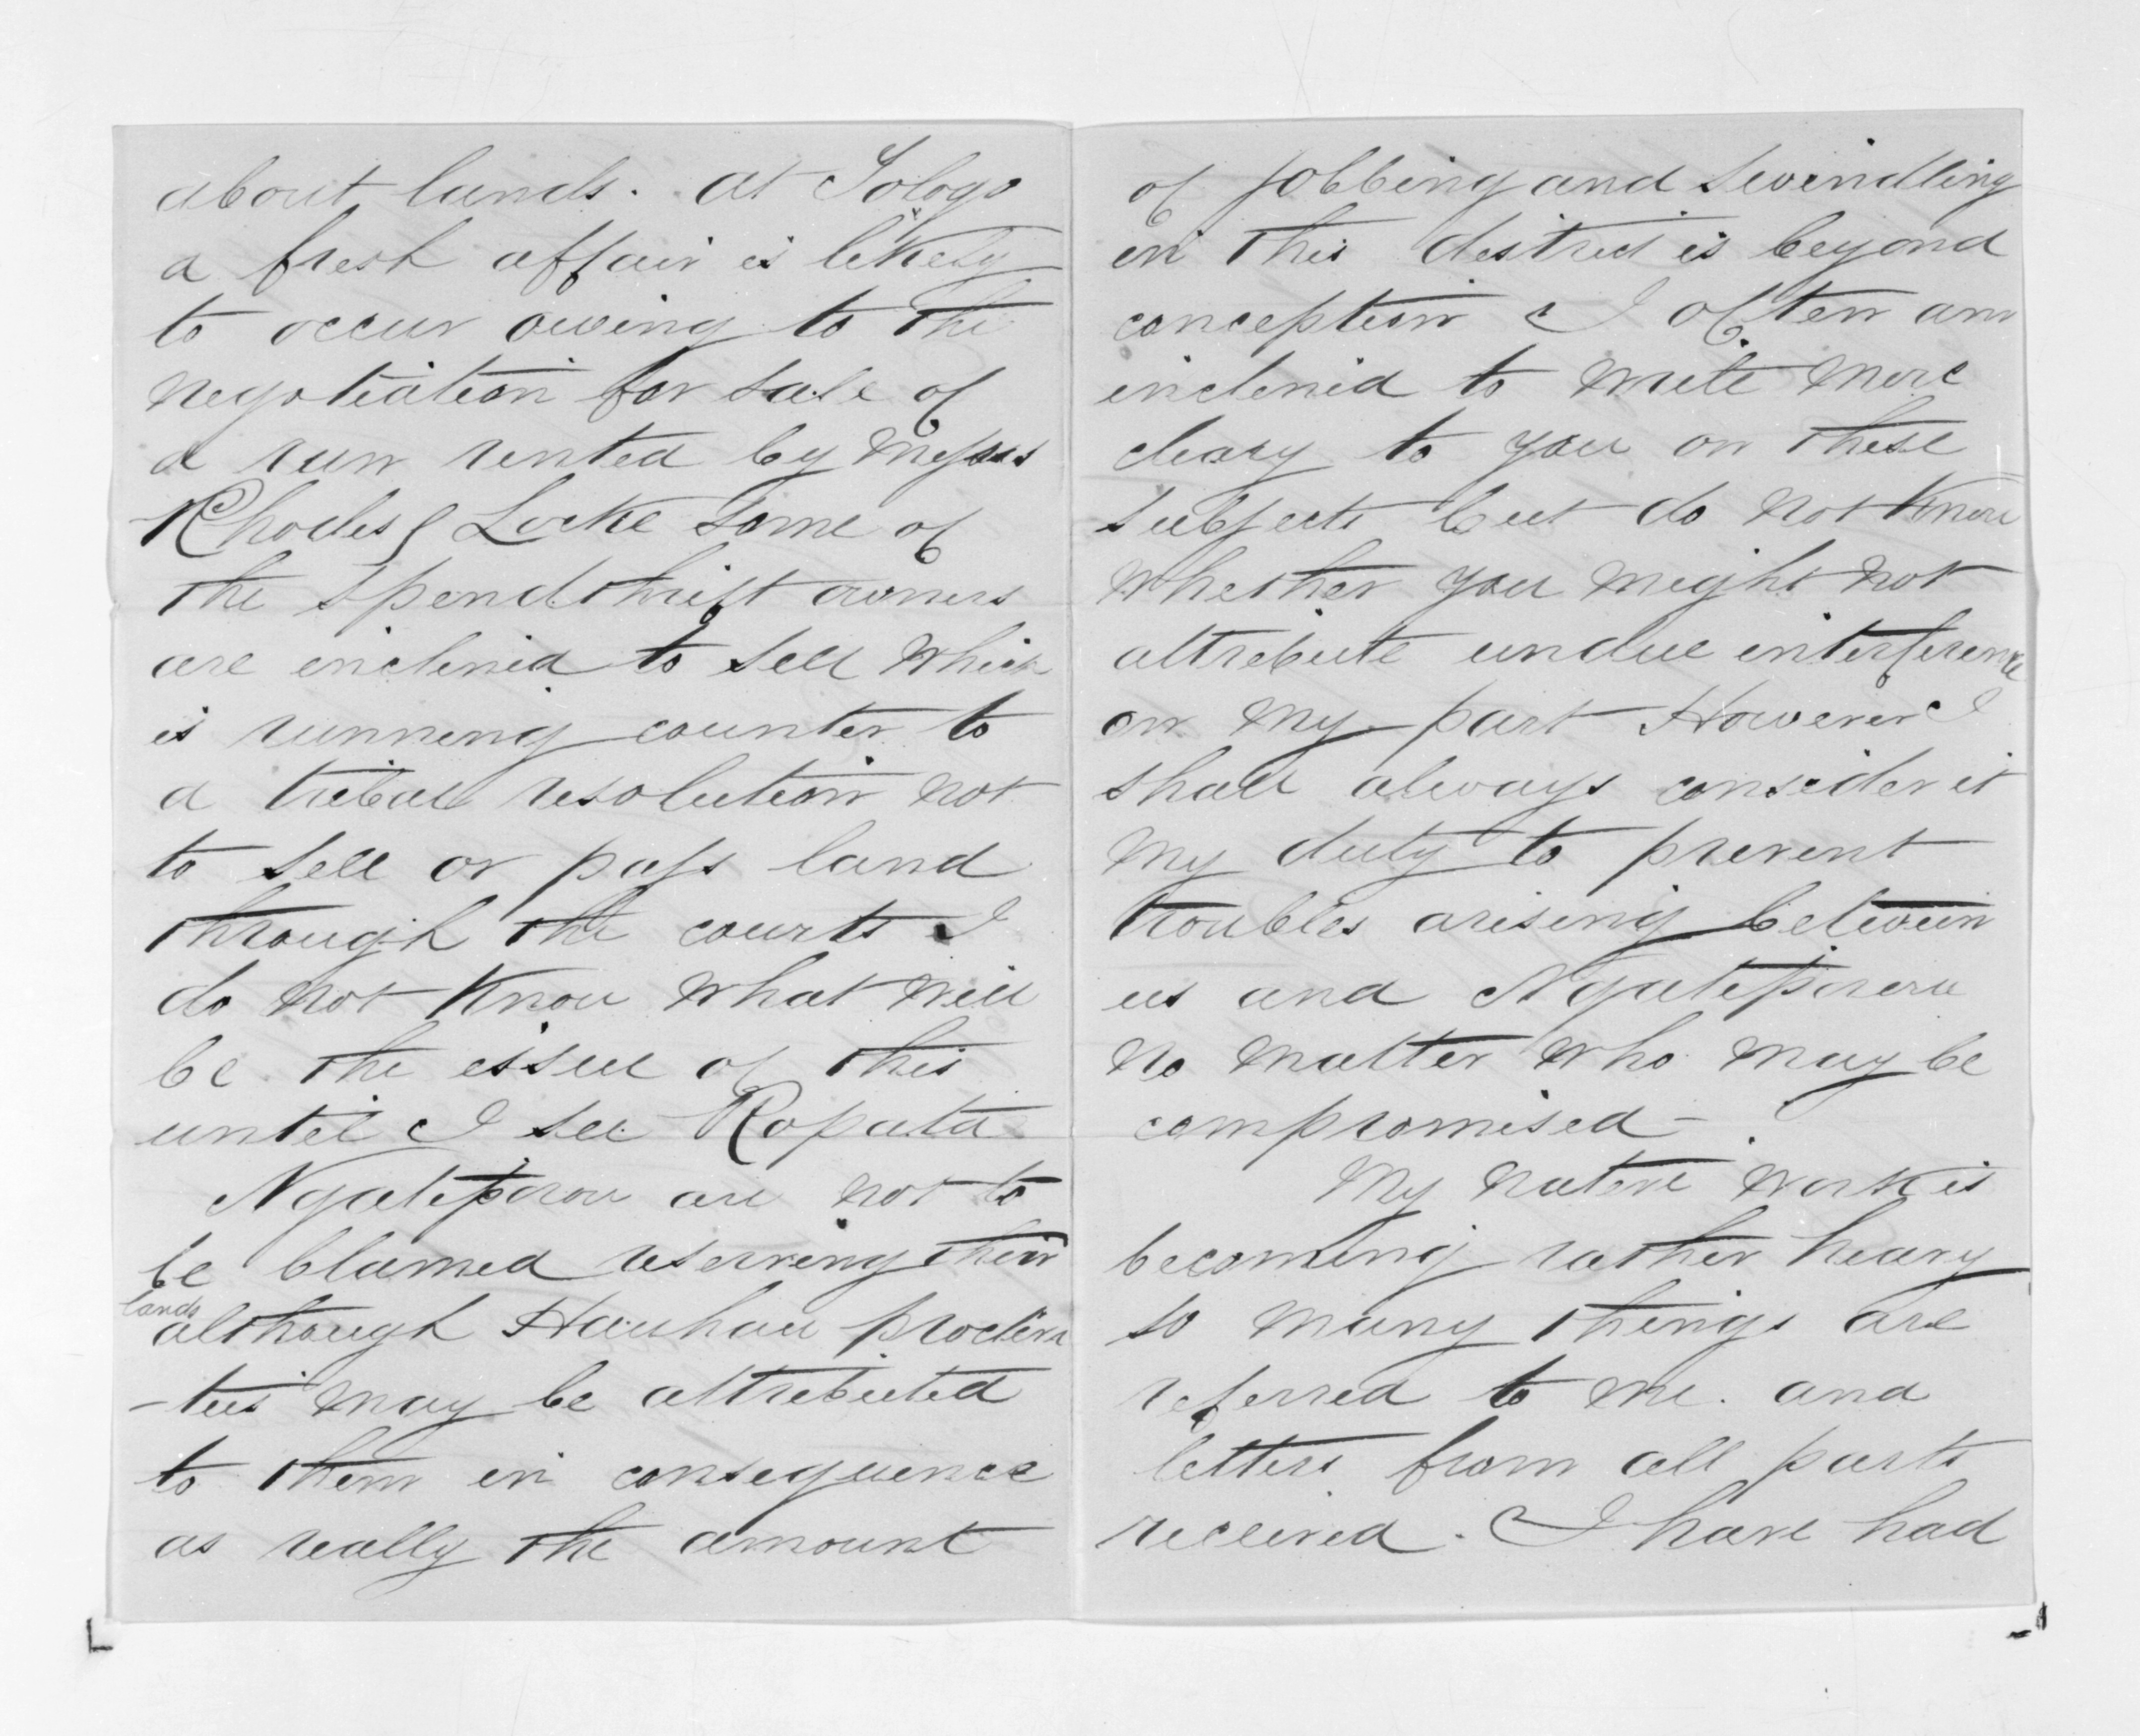 about lands. at Tologo
a fresh affair is likely
to occur owing to the
negotiation for sale of
a run rented by Messrs
Rhodes & Locke some of
the spendthrift owners
are inclined to sell which
is running counter to
a tribal resolution not
to sell or pass land
through the courts I
do not know what will
be the issue of this
until I see Ropata
Ngatiporou are not to
be blamed reserving their
lands
although Hauhau procliv
-ties may be attributed
to them in consequence
as really the amount
of jobbing and swindling
in this district is beyond
conception & I often am
inclined to write more
cleary to you on these
subjects but do not know
whether you might not
attribute undue interference
on my part However I
shall always consider it
my duty to prevent
troubles arising between
us and Ngatiporou
no matter who may be
compromised -
My native work is
becoming rather heavy
so many things are
referred to me. and
letters from all parts
received. I have had